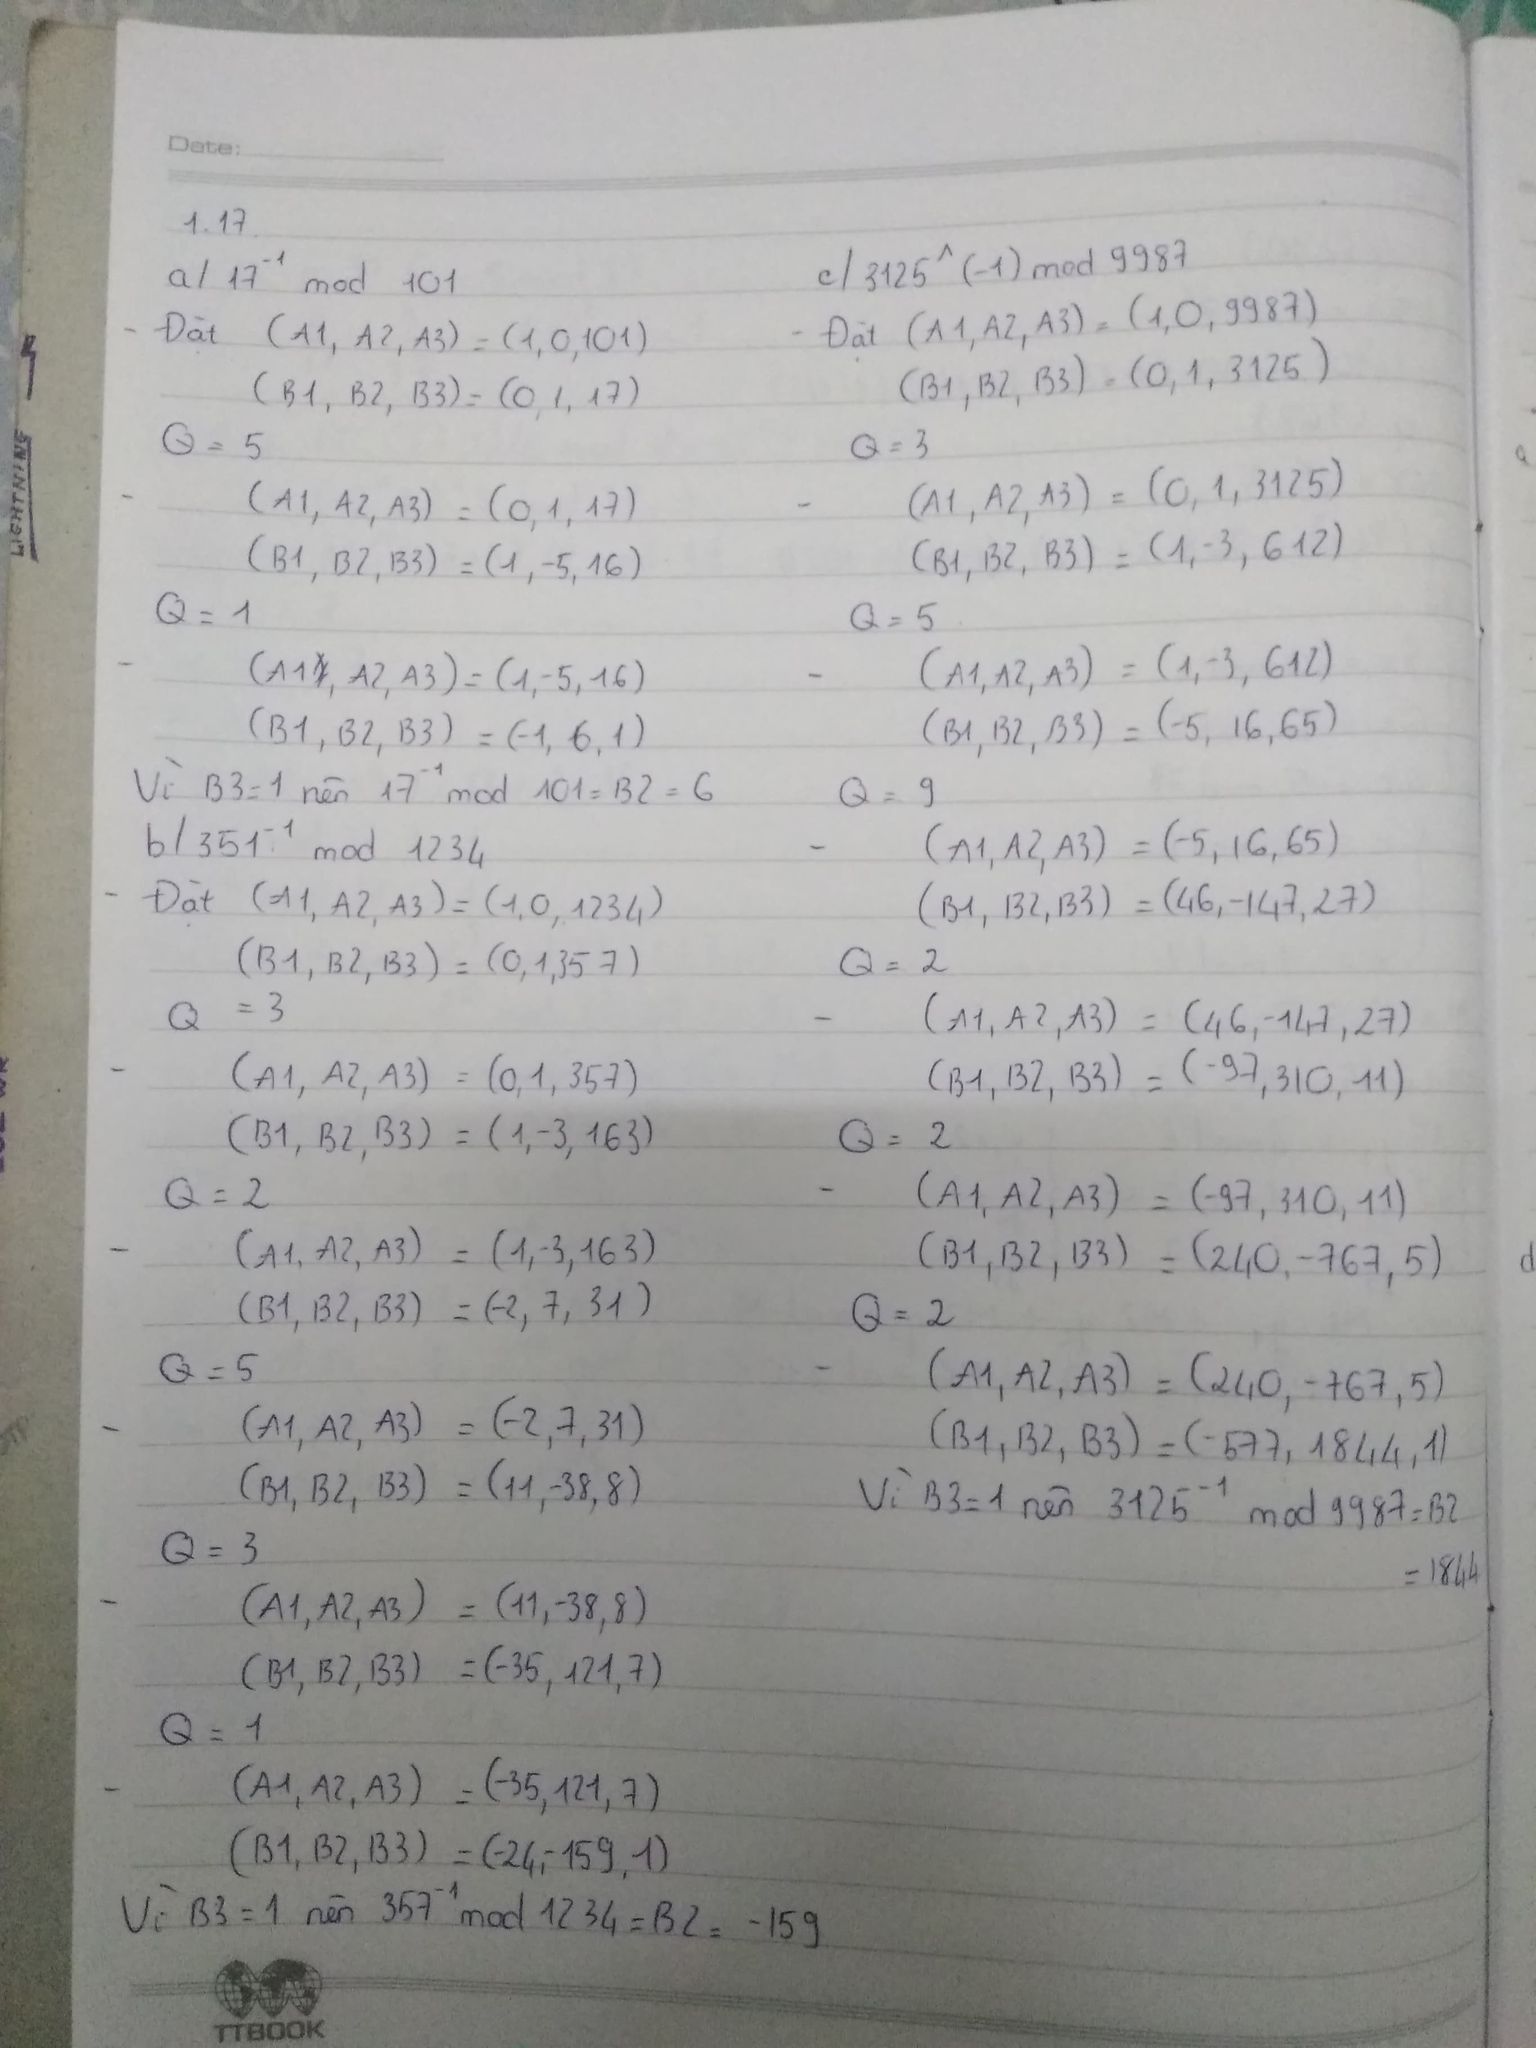 Date:
1.17
a/ 17⁻¹ mod 101
- Đặt (A1, A2, A3) = (1, 0, 101)
(B1, B2, B3) = (0, 1, 17)
Q = 5
- (A1, A2, A3) = (0, 1, 17)
(B1, B2, B3) = (1, -5, 16)
Q = 1
- (A1, A2, A3) = (1, -5, 16)
(B1, B2, B3) = (-1, 6, 1)
Vì B3 = 1 nên 17⁻¹ mod 101 = B2 = 6
b/ 351⁻¹ mod 1234
- Đặt (A1, A2, A3) = (1, 0, 1234)
(B1, B2, B3) = (0, 1, 357)
Q = 3
- (A1, A2, A3) = (0, 1, 357)
(B1, B2, B3) = (1, -3, 163)
Q = 2
- (A1, A2, A3) = (1, -3, 163)
(B1, B2, B3) = (-2, 7, 31)
Q = 5
- (A1, A2, A3) = (-2, 7, 31)
(B1, B2, B3) = (11, -38, 8)
Q = 3
- (A1, A2, A3) = (11, -38, 8)
(B1, B2, B3) = (-35, 121, 7)
Q = 1
- (A1, A2, A3) = (-35, 121, 7)
(B1, B2, B3) = (-24, -159, 1)
Vì B3 = 1 nên 357⁻¹ mod 1234 = B2 = -159
c/ 3125^(-1) mod 9987
- Đặt (A1, A2, A3) = (1, 0, 9987)
(B1, B2, B3) = (0, 1, 3125)
Q = 3
- (A1, A2, A3) = (0, 1, 3125)
(B1, B2, B3) = (1, -3, 612)
Q = 5
- (A1, A2, A3) = (1, -3, 612)
(B1, B2, B3) = (-5, 16, 65)
Q = 9
- (A1, A2, A3) = (-5, 16, 65)
(B1, B2, B3) = (46, -147, 27)
Q = 2
- (A1, A2, A3) = (46, -147, 27)
(B1, B2, B3) = (-97, 310, 11)
Q = 2
- (A1, A2, A3) = (-97, 310, 11)
(B1, B2, B3) = (240, -767, 5)
Q = 2
- (A1, A2, A3) = (240, -767, 5)
(B1, B2, B3) = (-577, 1844, 1)
Vì B3 = 1 nên 3125⁻¹ mod 9987 = B2
= 1844
TTBOOK
LIGHTNING